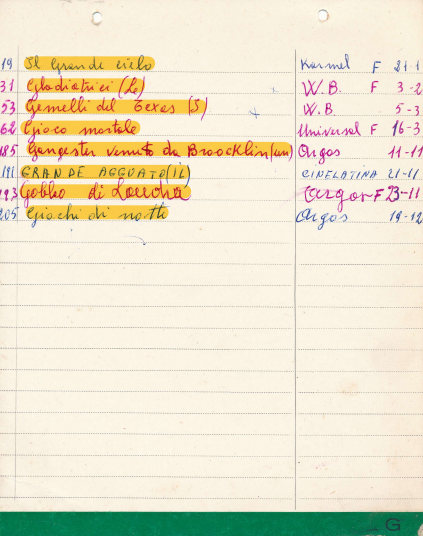 19 Il Grande cielo Karmel F 21-1
31 Gladiatrici (Le) W.B. F 3-2
53 Gemelli del Texas (I) W.B. 5-3
62 Gioco mortale Universal F 16-3
185 Gangester venuto da Broocklin (un) Argos 11-11
191 GRANDE AGGUATO (IL) CINELATINA 21-11
193 Gobbo di Londra Argos F 23-11
205 Giochi di notte Argos 19-12
G